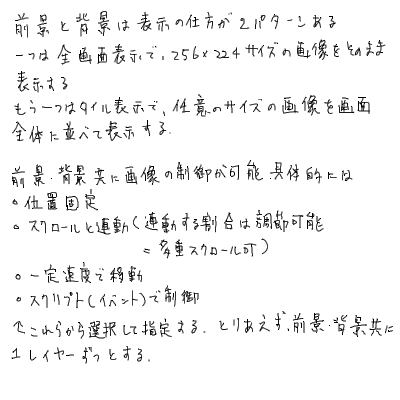 前景と背景は表示の仕方が2パターンある
一つは全画面表示で、256×224サイズの画像をそのまま
表示する
もう一つはタイル表示で、任意のサイズの画像を画面
全体に並べて表示する.
前景・背景共に画像の制御が可能.具体的には
○位置固定
○スクロールと連動(連動する割合は調節可能
=多重スクロール可)
○一定速度で移動
○スクリプト(イベント)で制御
↑これらから選択して指定する.とりあえず、前景・背景共に
1レイヤーずつとする.